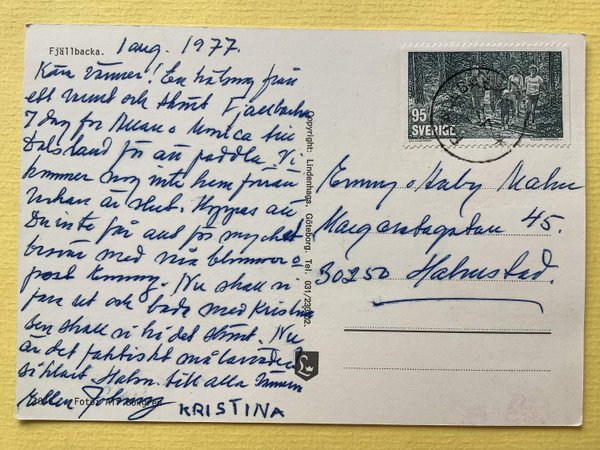 Fjällbacka.
1 aug. 1977.
Kära vänner! En hälsning från
ett varmt och skönt Fjällbacka
I dag for Allan o Monica till
Dalsland för att paddla. Vi
kommer nog inte hem förrän
veckan är slut. Hoppas att
Du inte får allt för mycket
besvär med våra blommor o
post Emmy. Nu skall vi
ut och bada med Kristina
sen skall vi ha det skönt. Nu
är det faktiskt
så klart. Hälsn. till alla
Ellen
KRISTINA
Foto:
Copyright: Lindenhags. Göteborg. Tel. 031/
95
SVERIGE
Emmy o Malm
45.
30250 Halmstad.